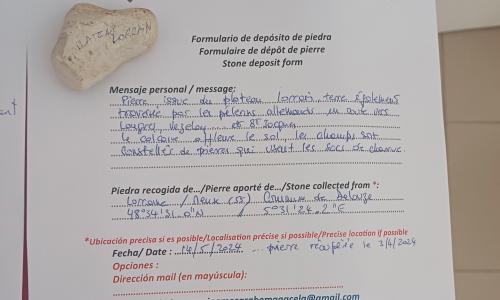 PLATEAU
LORRAIN
Formulario de depósito de piedra
Formulaire de dépôt de pierre
Stone deposit form
Mensaje personal / message:
Pierre, issue du plateau lorrain, terre également
traversée par les pèlerins allemands en route vers
Langres, Vezelay ... et St Jacques
le calcaire affleure le sol, les champs sont
constellés de pierres qui usent les socs de charrue
Piedra recogida de.../Pierre aporté de.../Stone collected from *:
Lorraine / Meuse (55) Commune de
48°34'31.0"N / 5°31'24.2"E
*Ubicación precisa si es posible/Localisation précise si possible/Precise location if possible
Fecha/ Date : 14/5/2024 ... pierre récupérée le 3/4/2024
Opciones :
Dirección mail (en mayúscula):
@gmail.com